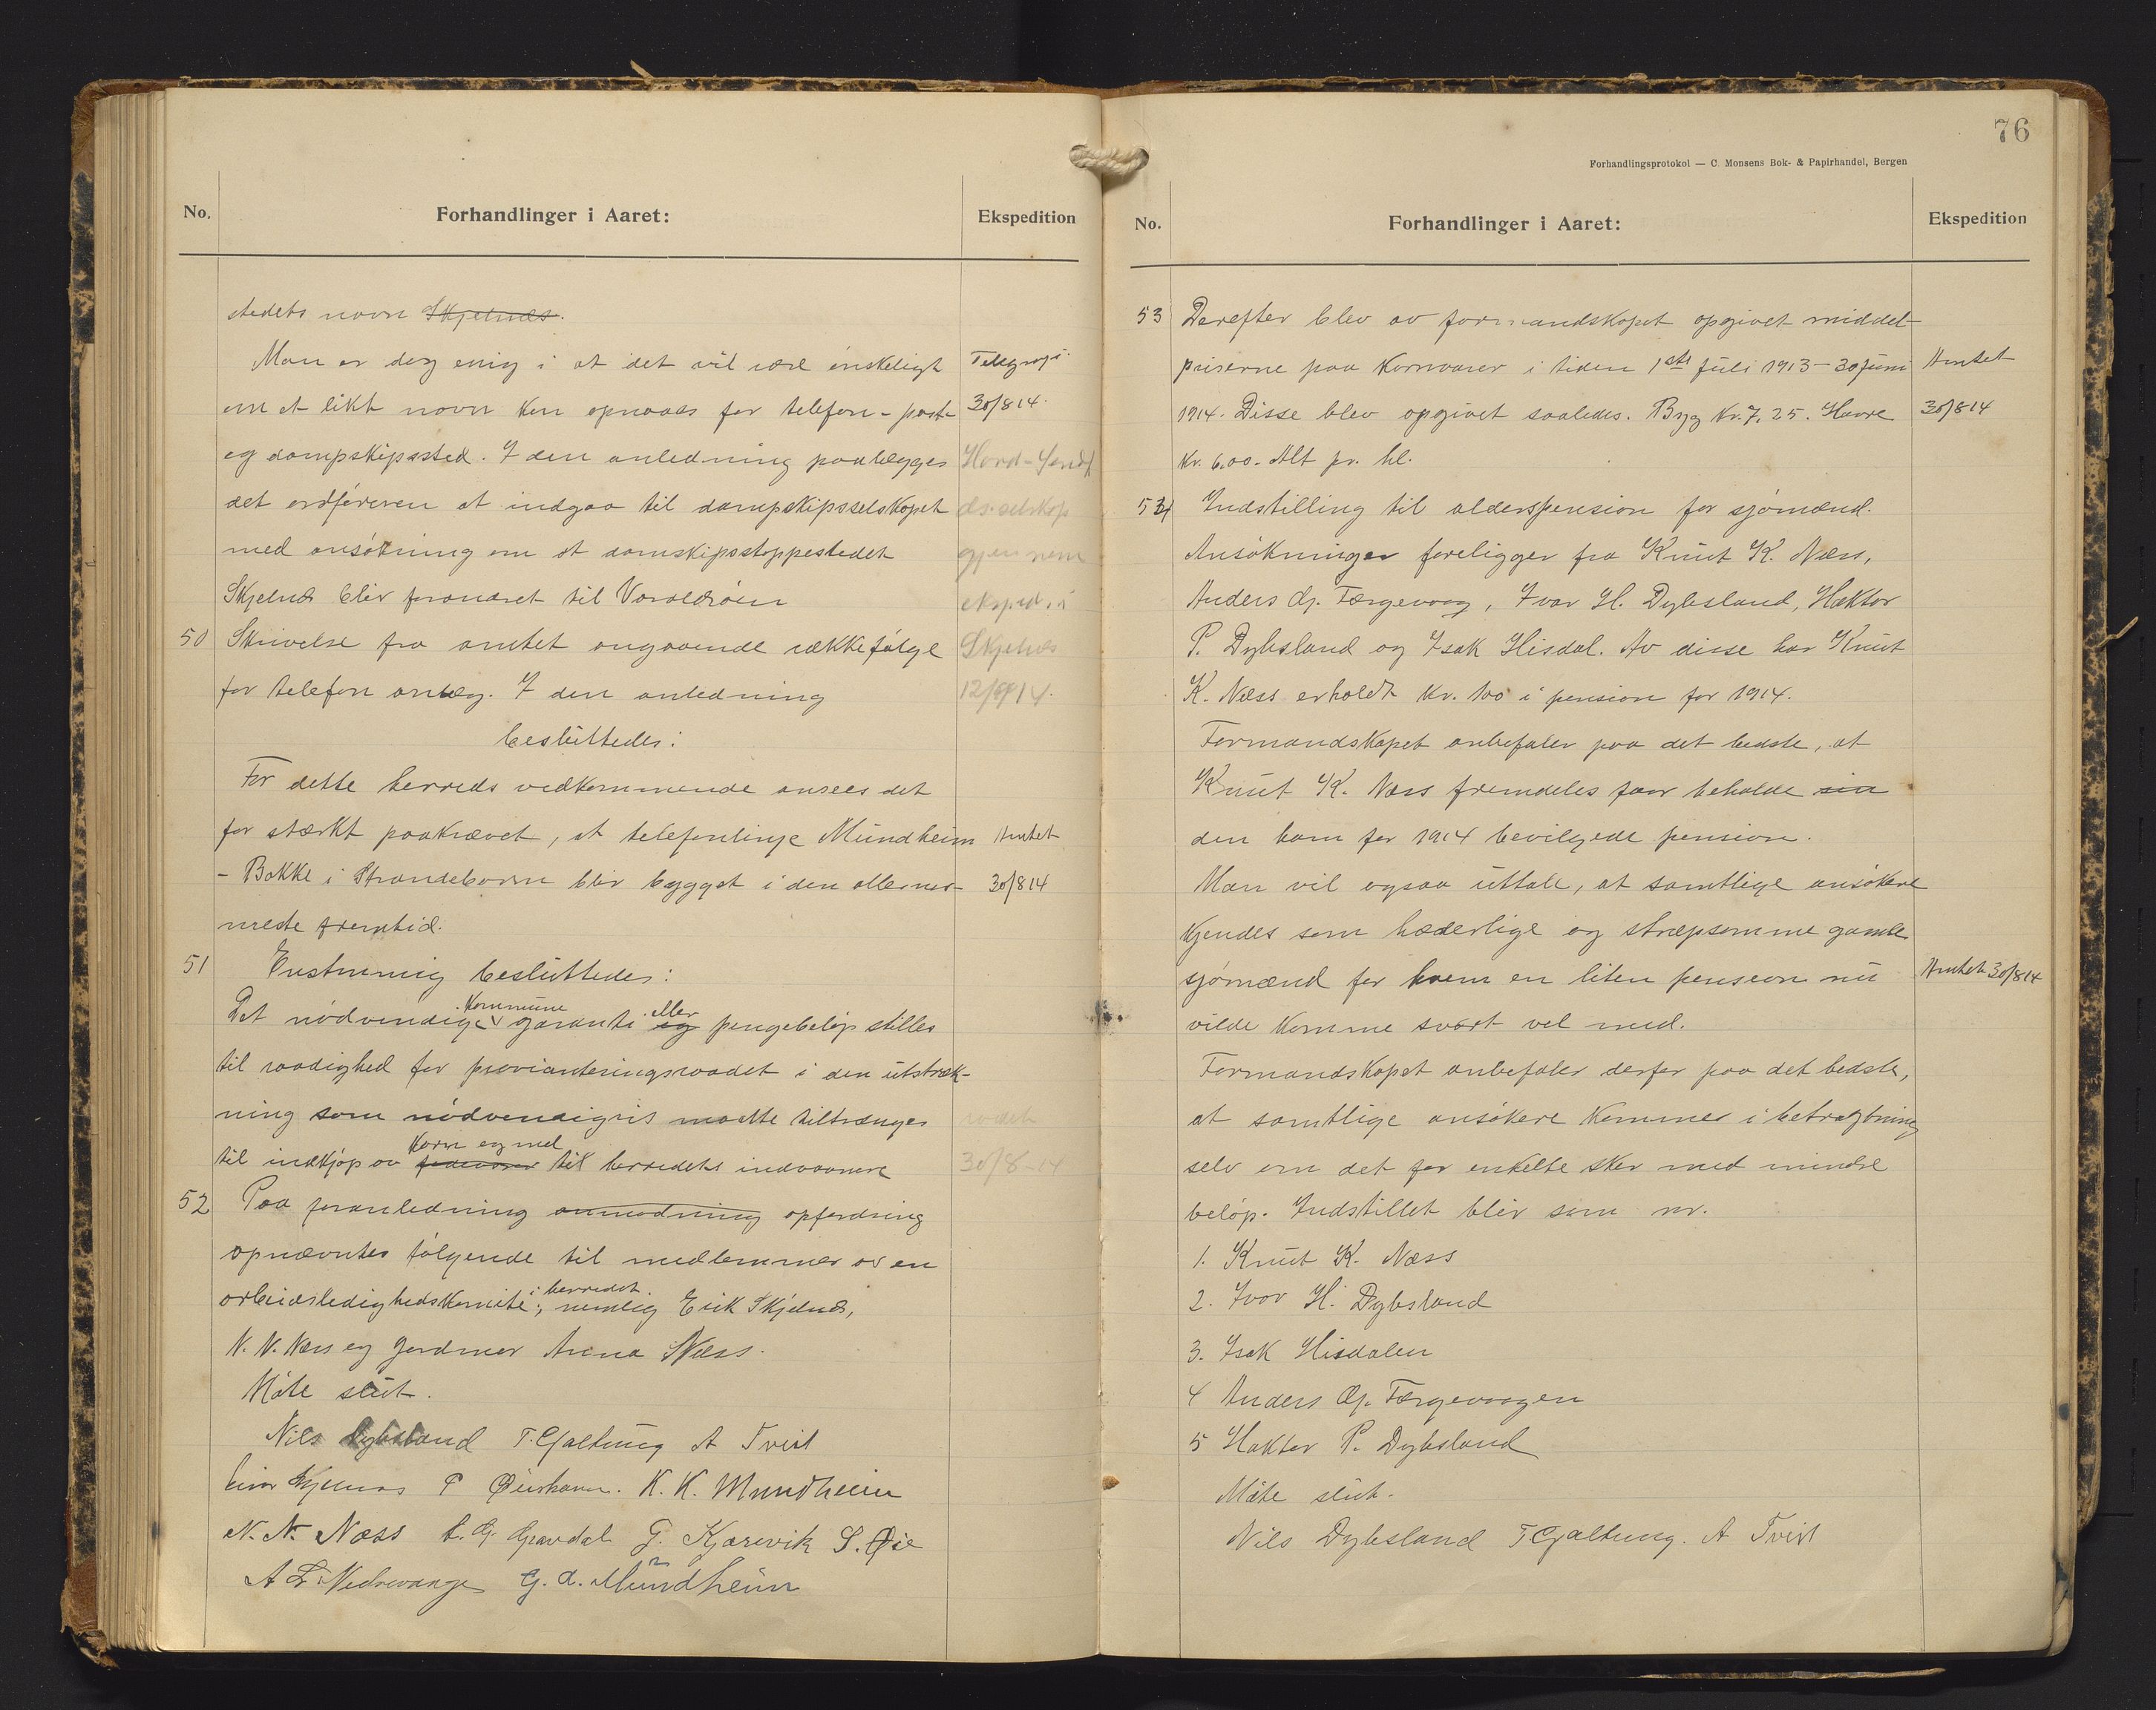 No.
Forhandlinger i Aaret:
Ekspedition
stedets navn Skjelnes.
Man er dog enig i at det vil være ønskeligt
om et likt navn kan opnaaes for telefon- post-
og dampskipssted. I den anledning paalægges
det ordføreren at indgaa til dampskipsselskapet
med ansøkning om at damskipsstoppestedet
Skjelnes blir forandret til Varaldsøen
Telegrafi
30/8 14.
Hard-Søndf
ds.selskap
gjennem
eksped. i
Skjelnes
12/9 14.
50 Skrivelse fra amtet angaaende rækkefølge
for telefon anlæg. I den anledning
besluttedes:
For dette herreds vedkommende ansees det
for stærkt paakrævet, at telefonlinje Mundheim
- Bakke i Strandebarm blir bygget i den allernær-
meste fremtid.
Amtet
30/8 14
51 Enstemmig besluttedes:
Det nødvendige kommune garanti og eller pengebeløp stilles
til raadighed for provianteringsraadet i den utstræk-
ning som nødvendigvis maatte tiltrænges
til indkjøp av fødevarer korn og mel til herredets indvaanere
raadet
30/8-14
52 Paa foranledning anmodning opfordring
opnævntes følgende til medlemmer av en
arbeidsledighedskomite i herredet, nemlig Erik Skjelnes,
N. N. Næs og Jordmor Anna Næss.
Møte slut.
Nils Dybsland T. Galtung A Tveit
Skjelnæs P K. K. Mundheim
N. N. Næss Gravdal G. Kjærevik S. Øie
A G. A. Mundheim
76
Forhandlingsprotokol — C. Monsens Bok- & Papirhandel, Bergen
No.
Forhandlinger i Aaret:
Ekspedition
53 Derefter blev av formandskapet opgivet middel-
priserne paa kornvarer i tiden 1ste juli 1913 - 30 juni
1914. Disse blev opgivet saaledes. Byg kr. 7.25. Havre
kr. 6.00. Alt pr. hl.
Amtet
30/8 14
54 Indstilling til alderspension for sjømænd.
Ansøkninger foreligger fra Knut K. Næss,
Anders O. Færgevaag, Ivar H. Dybsland, Haktor
P. Dybsland og Isak Hisdal. Av disse har Knut
K. Næss erholdt kr. 100 i pension for 1914.
Formandskapet anbefaler paa det bedste, at
Knut K. Næss fremdeles faar beholde sin
den ham for 1914 bevilgede pension.
Man vil ogsaa uttale, at samtlige ansøkere
kjendes som hæderlige og stræpsomme gamle
sjømænd for hvem en liten pension nu
vilde komme svært vel med.
Amtet 30/8 14
Formandskapet anbefaler derfor paa det bedste,
at samtlige ansøkere kommer i betragtning
selv om det for enkelte sker med mindre
beløp. Indstillet blir som nr.
1. Knut K. Næss
2. Ivar H. Dybsland
3. Isak Hisdalen
4 Anders O. Færgevaagen
5 Haktor P. Dybsland
Møte slut.
Nils Dybsland T Galtung. A Tveit